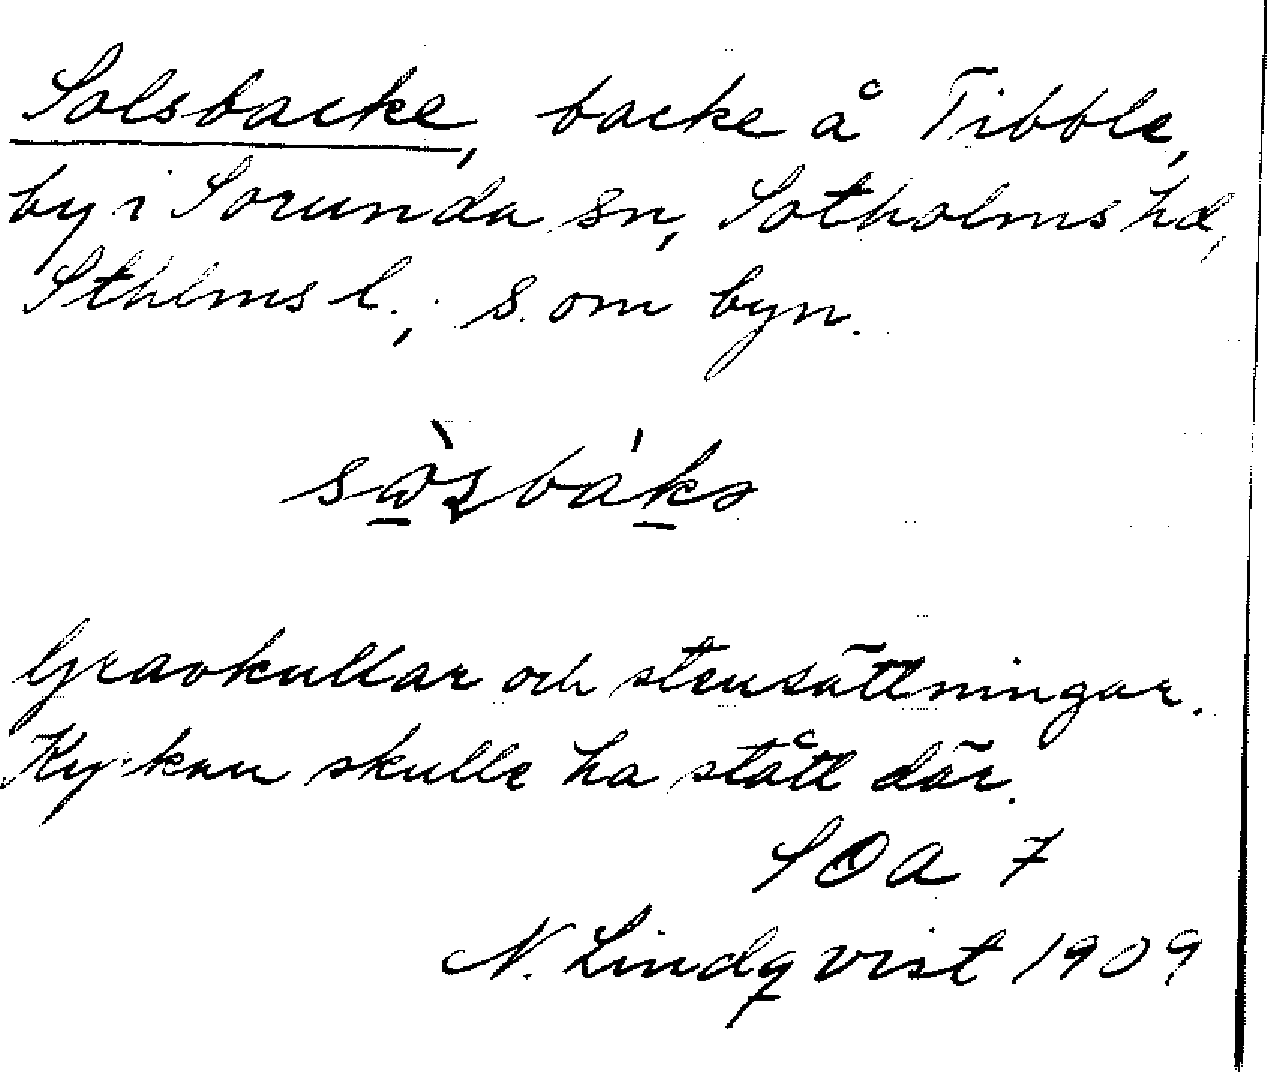 Solsbacke, backe å Tibble,
by i Sorunda sn, Sotholms hd,
Sthlms l.; S. om byn.
Gravkullar och stensättningar.
Kyrkan skulle ha stått där.
SOA 7
N. Lindqvist 1909